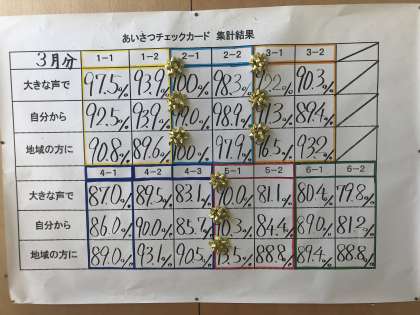 あいさつチェックカード 集計結果
3月分 1-1 1-2 2-1 2-2 3-1 3-2
大きな声で 97.5% 93.9% 100% 98.3% 90.3%
自分から 92.5% 93.9% 98.9% 89.4%
地域の方に 90.8% 89.6% 100% 97.9% 96.5% 93.2%
4-1 4-2 4-3 5-1 5-2 6-1 6-2
大きな声で 87.0% 89.5% 83.1% 90.0% 81.1% 80.4% 79.8%
自分から 86.0% 90.0% 85.7% 90.3% 84.4% 89.0% 81.2%
地域の方に 89.0% 93.1% 90.5% 93.5% 88.8% 89.4% 88.8%